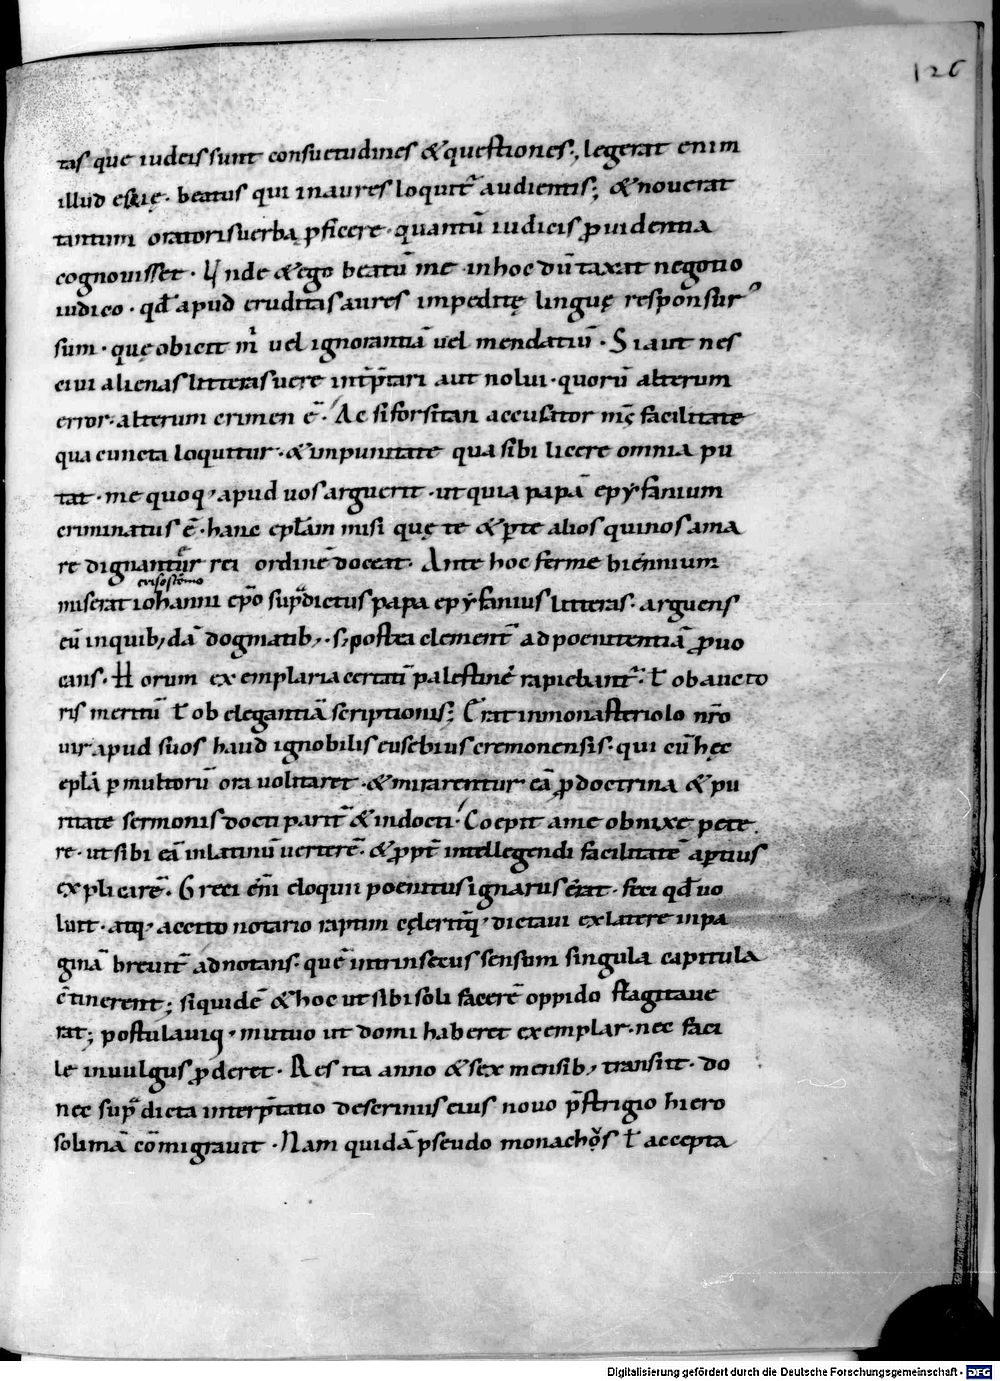 126
tas que iudeis sunt consuetudines &questiones;, legerat enim
illud esaię. beatus qui inaures loquit̄ audientis; &nouerat
tantum oratoris uerba p̱ficere. quantū iudicis ꝓuidentia
cognouisset. Unde &ego beatū me inhoc dū taxat negotio
iudico. qđ apud eruditas aures impeditę linguę responsur᾿
sum. quę obicit m̊ uel ignorantiā uel mendatiū. Si aut nes
ciui alienas litteras uere int̄p̄tari aut nolui. quorū alterum
error. alterum crimen ē. Ac si forsitan accusator m̄s facilitate
qua cuncta loquitur. &impunitate qua sibi licere omnia pu
tat. me quoq; apud uos arguerit. ut quia papā epyfanium
criminatus ē. hanc epłam misi quę te &p̱te alios qui nos ama
re dignantur rei ordinē doceat. Ante hoc ferme biennium
crisostomo
miserat iohanni ep̄o sup̄dictus papa epyfanius litteras. arguens
eū inquib; dā dogmatib;. s; postea clement̄ ad poenitentiā ꝓuo
cans. Horum exemplaria certatī palestinę rapiebant̄. ł ob aucto
ris meritū ł ob elegantiā scriptionis; Erat inmonasteriolo nr̄o
uir apud suos haud ignobilis eusebius cremonensis. qui cū hęc
epłā p̱ multorū ora uolitaret. &mirarentur eā ꝓdoctrina &pu
ritate sermonis docti parit̄ &indocti. Coepit ame obnixe pete
re. ut sibi eā inlatinū uerterē. &ꝓpt̄ intellegendi facilitatē ap̱tius
explicarē. Greci em̄ eloquii poenitus ignarus erat. feci qđ uo
luit. atq; accito notario raptim celeritq; dictaui ex latere inpa
ginā breuit̄ adnotans. quē intrinsecus sensum singula capitula
c̄tinerent; siquidē &hoc ut sibi soli facerē oppido flagitaue
rat; postulauiq; mutuo ut domi haberet exemplar. nec faci
le inuulgus ꝓderet. Res ita anno &sex mensib; transiit. do
nec sup̄dicta interp̄tatio descriniis eius nouo p̄strigio hiero
solimā cōmigrauit. Nam quidā pseudo monachos ł accepta
Digitalisierung gefördert durch die Deutsche Forschungsgemeinschaft - DFG